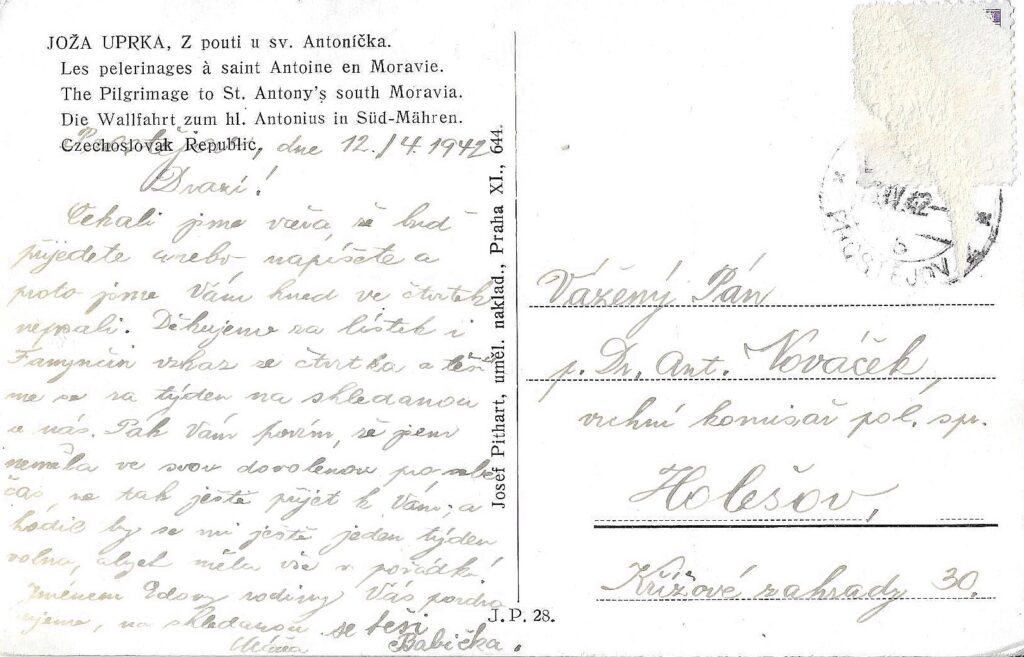 JOŽA UPRKA, Z pouti u sv. Antoníčka.
Les pelerinages à saint Antoine en Moravie.
The Pilgrimage to St. Antony's south Moravia.
Die Wallfahrt zum hl. Antonius in Süd-Mähren.
Czechoslovak Republic.
dne 12./4. 1942
Drazí!
Čekali jsme včera, že buď
přijedete anebo napíšete a
proto jsme Vám hned ve čtvrtek
nepsali. Děkujeme za lístek i
vzkaz ze čtvrtka a těší
me se za týden na shledanou
u nás. Pak Vám povím, že jsem
neměla ve svou dovolenou pro sebe
čas, ne tak ještě přijet k Vám, a
hodil by se mi ještě jeden týden
volna, abych měla vše v pořádku.
Jménem rodiny Vás pozdra
vujeme, na shledanou se těší
Babička.
Josef Pithart, uměl. naklad., Praha XI., 644.
J. P. 28.
IV.42
6
PROSTĚJOV
Vážený Pán
p. Dr. Ant. Nováček,
vrchní komisař pol. spr.
Holešov,
Křížové zahrady 30.